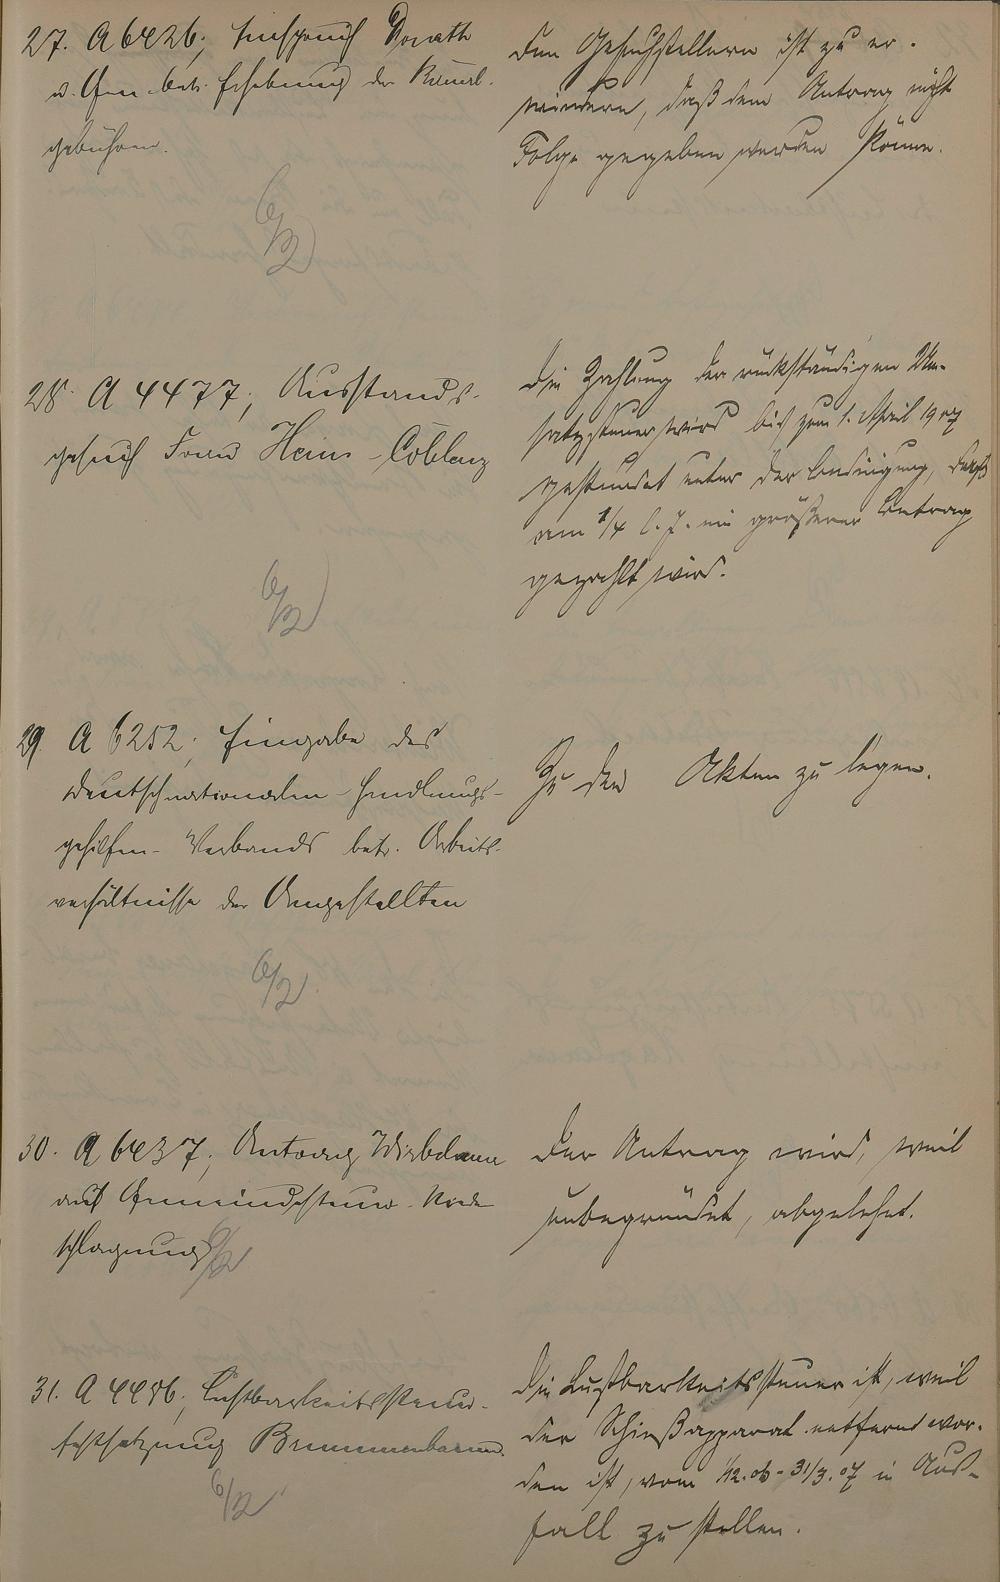 27. A 6426; Einspruch Donath
u. Gen. betr. Erhebung der Kanal-
gebühren.
6/2
Den Gesuchstellern ist zu er-
wiedern, daß dem Antrag nicht
Folge gegeben werden könne.
28. A 4477; Ausstands-
gesuch Frau Hein - Coblenz
6/2
Die Zahlung der rückständigen Um-
satzsteuer wird bis zum 1. April 1907
gestundet unter der Bedingung, daß
am 1/4 l. J. ein größerer Betrag
gezahlt wird.
29. A 6252; Eingabe des
deutschnationalen Handlungs-
gehilfen-Verbands betr. Arbeits-
verhältnisse der Angestellten
6/2
Zu den Akten zu legen.
30. A 6437; Antrag
auf Gemeindesteuer-Nieder
schlagung
6/2
Der Antrag wird, weil
unbegründet, abgelehnt.
31. A 4456; Lustbarkeitssteuer-
festsetzung Brunnenbaum
6/2
Die Lustbarkeitssteuer ist, weil
der Schießapparat entfernt wor-
den ist, vom 1/12.06 - 31/3.07 in Aus-
fall zu stellen.